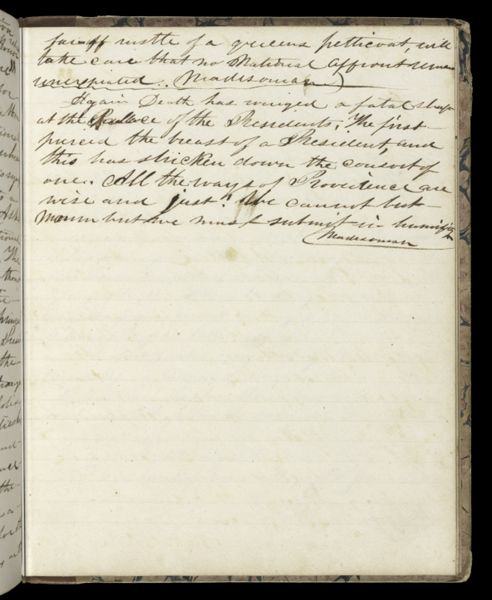 far off rustle of a queens petticoat, will
take care that no National Affront
unexpiated. Madisonian
Again Death has winged a fatal
at the Palace of the Presidents; The first
pierced the breast of a President and
this has stricken down the consort of
one. All the ways of Providence are
wise and just. We cannot but
Mourn but we must submit in
Madisonian